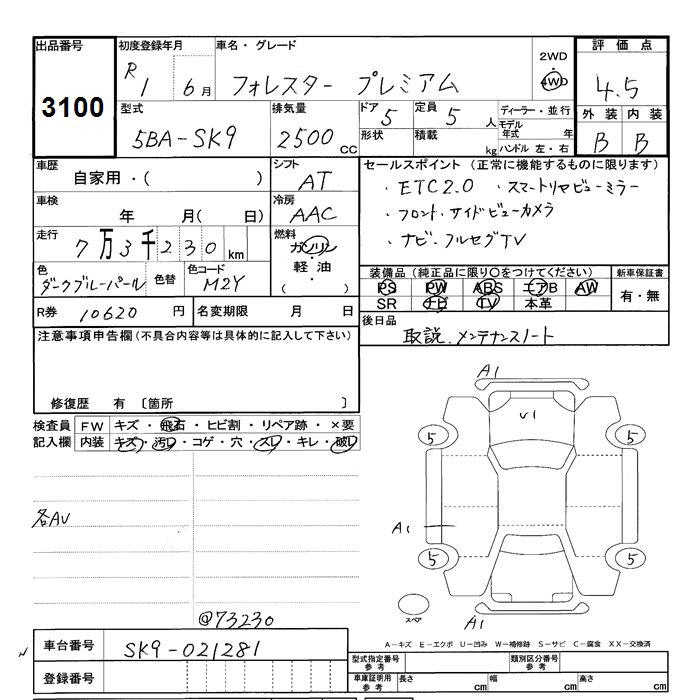 出品番号 初度登録年月 車名・グレード 評価点
3100 R1 6月 フォレスター プレミアム 2WD 4WD 4.5
型式 排気量 ドア 定員 ディーラー・並行 外装 内装
5BA-SK9 2500cc 5 5人 モデル年式 年 B B
形状 積載 kg ハンドル 左・右
車歴 シフト セールスポイント (正常に機能するものに限ります)
自家用・( ) AT ・ETC2.0 ・スマートリヤビューミラー
車検 冷房 ・フロント・サイドビューカメラ
年 月( 日) AAC ・ナビ・フルセグTV
走行 燃料
7万3千230km ガソリン
軽油
( )
色 色替 色コード 装備品 (純正品に限り○をつけてください) 新車保証書
ダークブルーパール M2Y PS PW ABS エアB AW 有・無
SR ナビ TV 本革
R券 10620円 名変期限 月 日 後日品
取説、メンテナンスノート
注意事項申告欄 (不具合内容等は具体的に記入して下さい)
修復歴 有 〔箇所 〕
検査員 FW キズ・飛石・ヒビ割・リペア跡・×要
記入欄 内装 キズ・汚レ・コゲ・穴・スレ・キレ・破レ
A1
U1
5 5
各AU
A1
5 5
スペア
A1
@73230
A-キズ E-エクボ U-凹み W-補修跡 S-サビ C-腐食 XX-交換済
車台番号 SK9-021281
型式指定番号 参考 類別区分番号 参考
登録番号 車庫証明用 参考 長さ cm 幅 cm 高さ cm